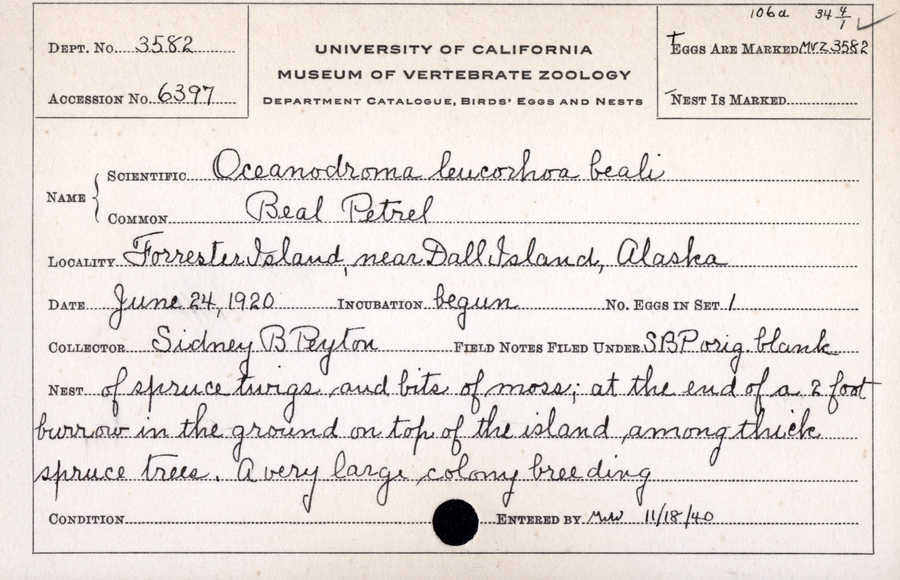 106a 34 4/1 ✓
DEPT. No. 3582
UNIVERSITY OF CALIFORNIA
EGGS ARE MARKED MVZ 3582
MUSEUM OF VERTEBRATE ZOOLOGY
ACCESSION No. 6397
DEPARTMENT CATALOGUE, BIRDS' EGGS AND NESTS
NEST IS MARKED
NAME { SCIENTIFIC Oceanodroma leucorhoa beali
COMMON Beal Petrel
LOCALITY Forrester Island, near Dall Island, Alaska
DATE June 24, 1920 INCUBATION begun No. EGGS IN SET 1
COLLECTOR Sidney B Peyton FIELD NOTES FILED UNDER SBP orig. blank
NEST of spruce twigs and bits of moss; at the end of a 2 foot
burrow in the ground on top of the island among thick
spruce trees. A very large colony breeding
CONDITION ENTERED BY 11/18/40